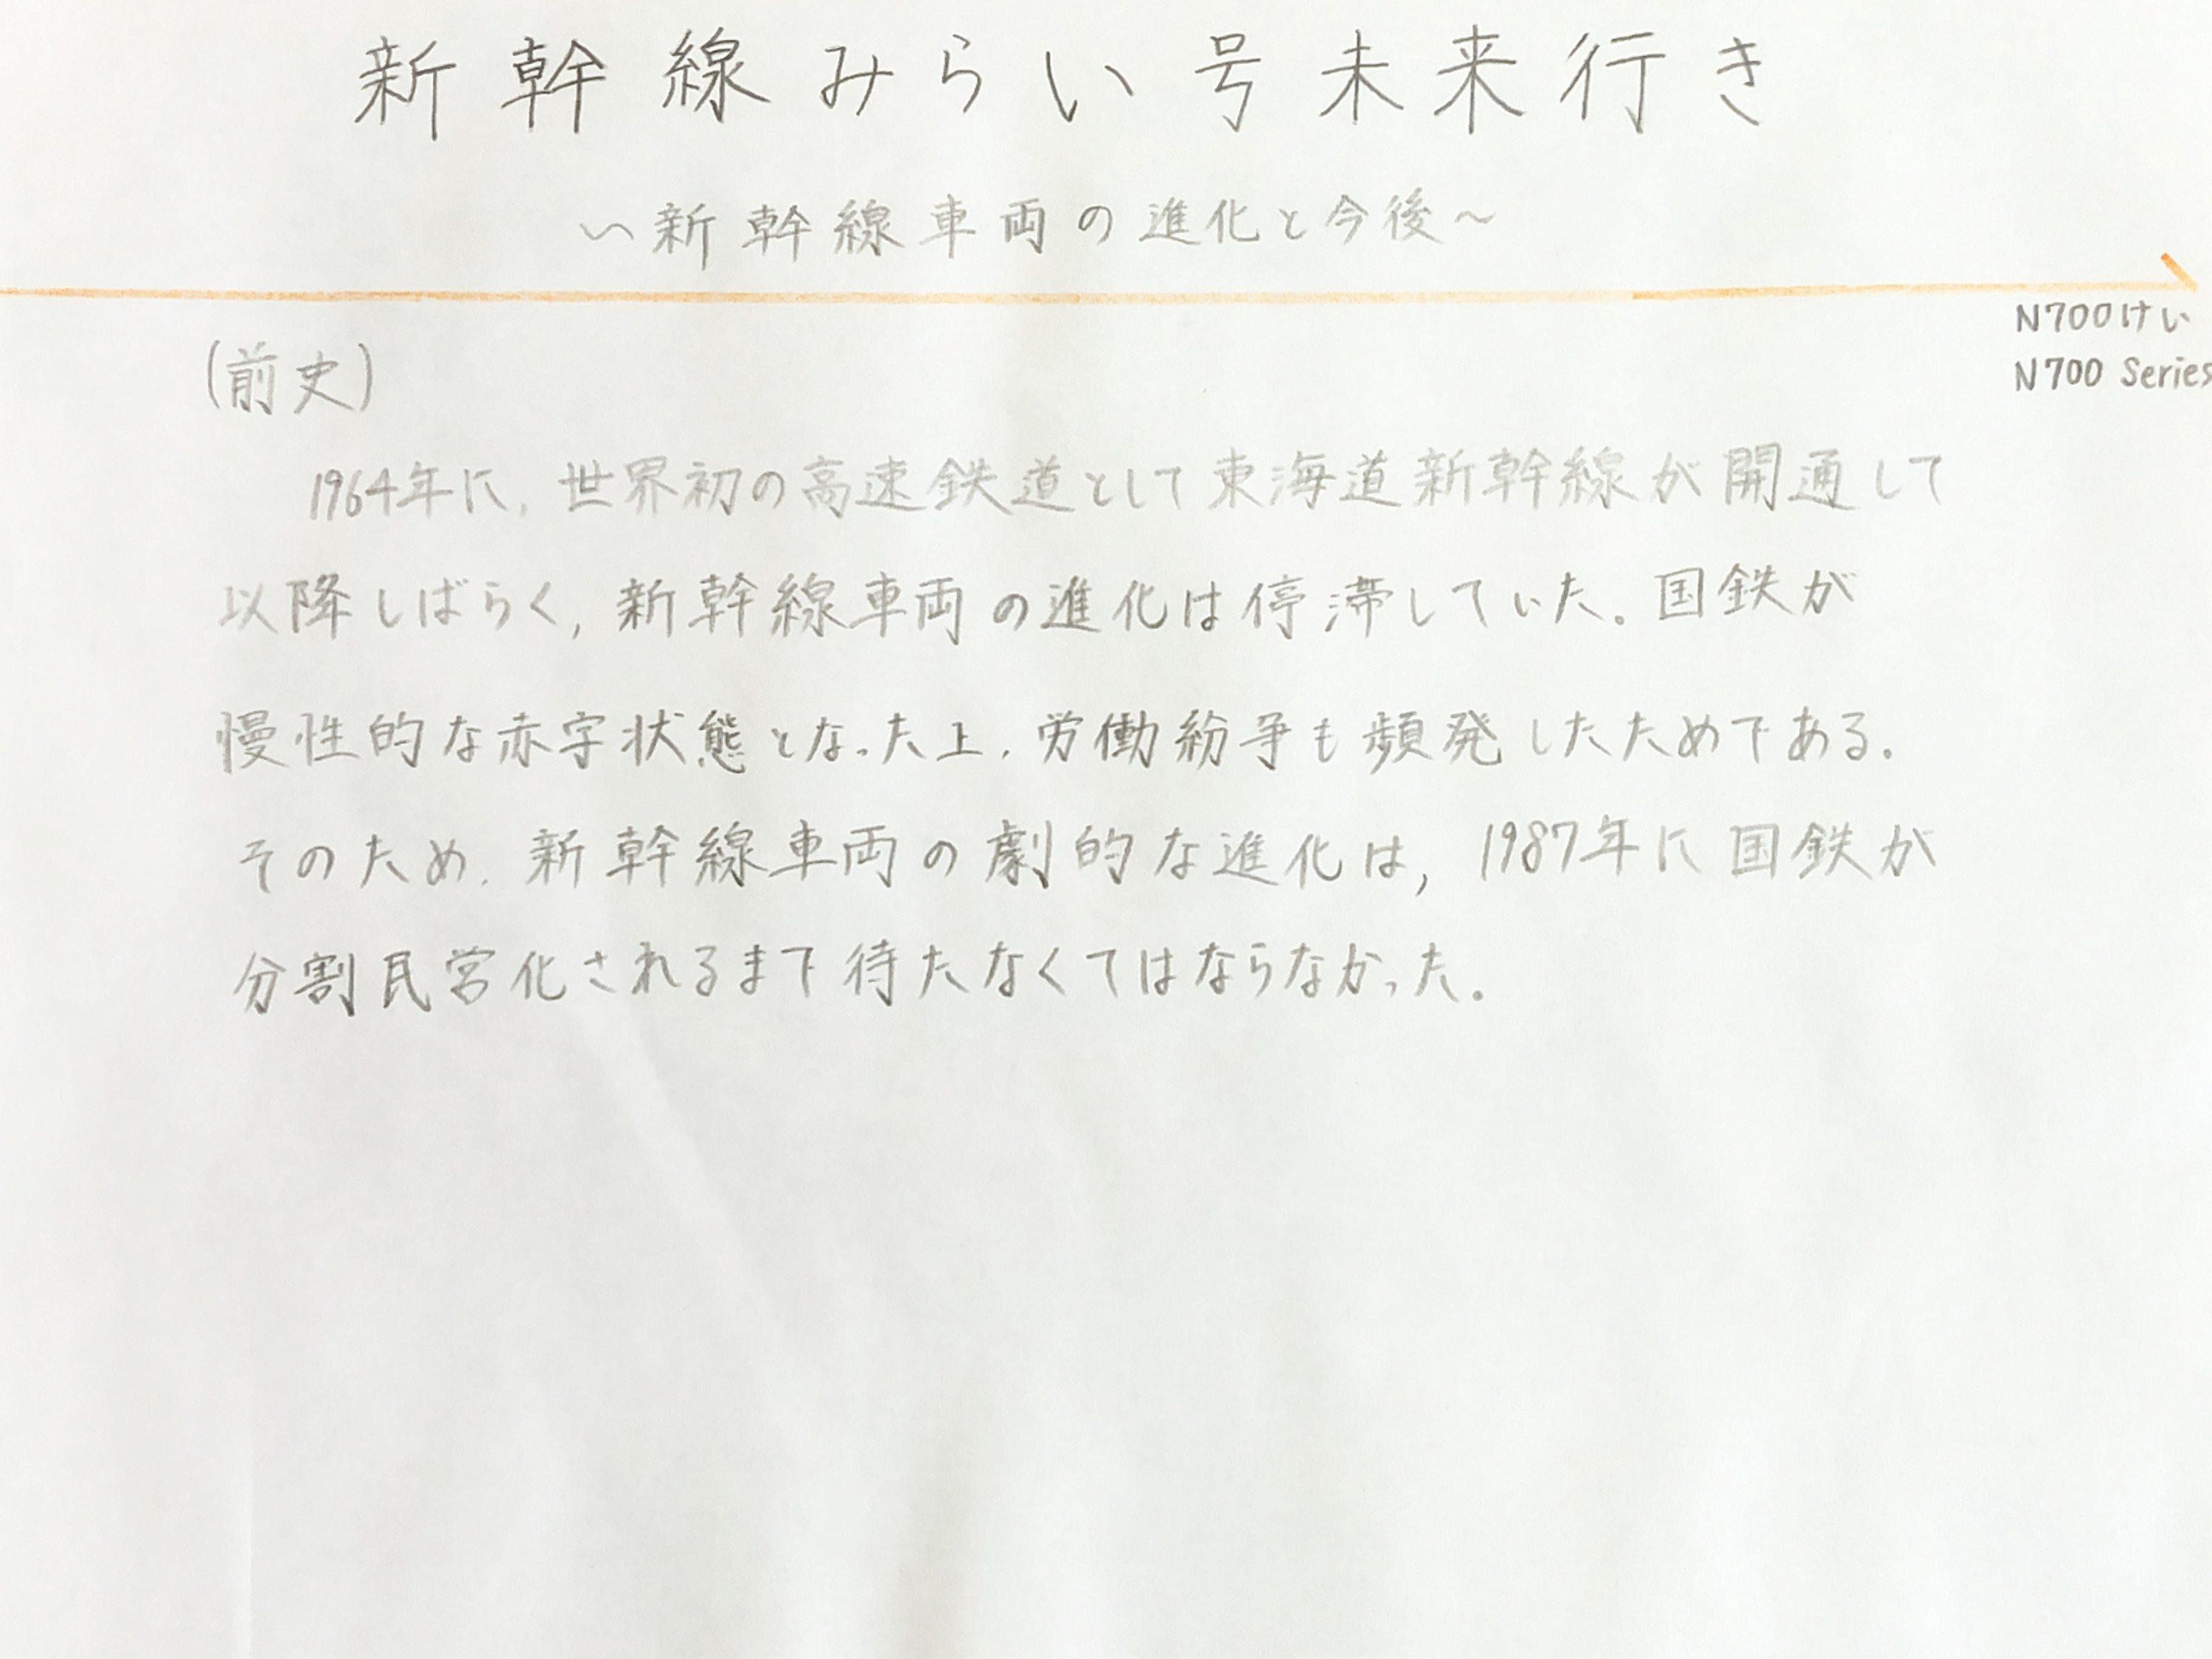 新幹線みらい号未来行き
〜新幹線車両の進化と今後〜
N700けい
N700 Series
(前史)
1964年に,世界初の高速鉄道として東海道新幹線が開通して
以降しばらく,新幹線車両の進化は停滞していた。国鉄が
慢性的な赤字状態となった上,労働紛争も頻発したためである。
そのため,新幹線車両の劇的な進化は,1987年に国鉄が
分割民営化されるまで待たなくてはならなかった。